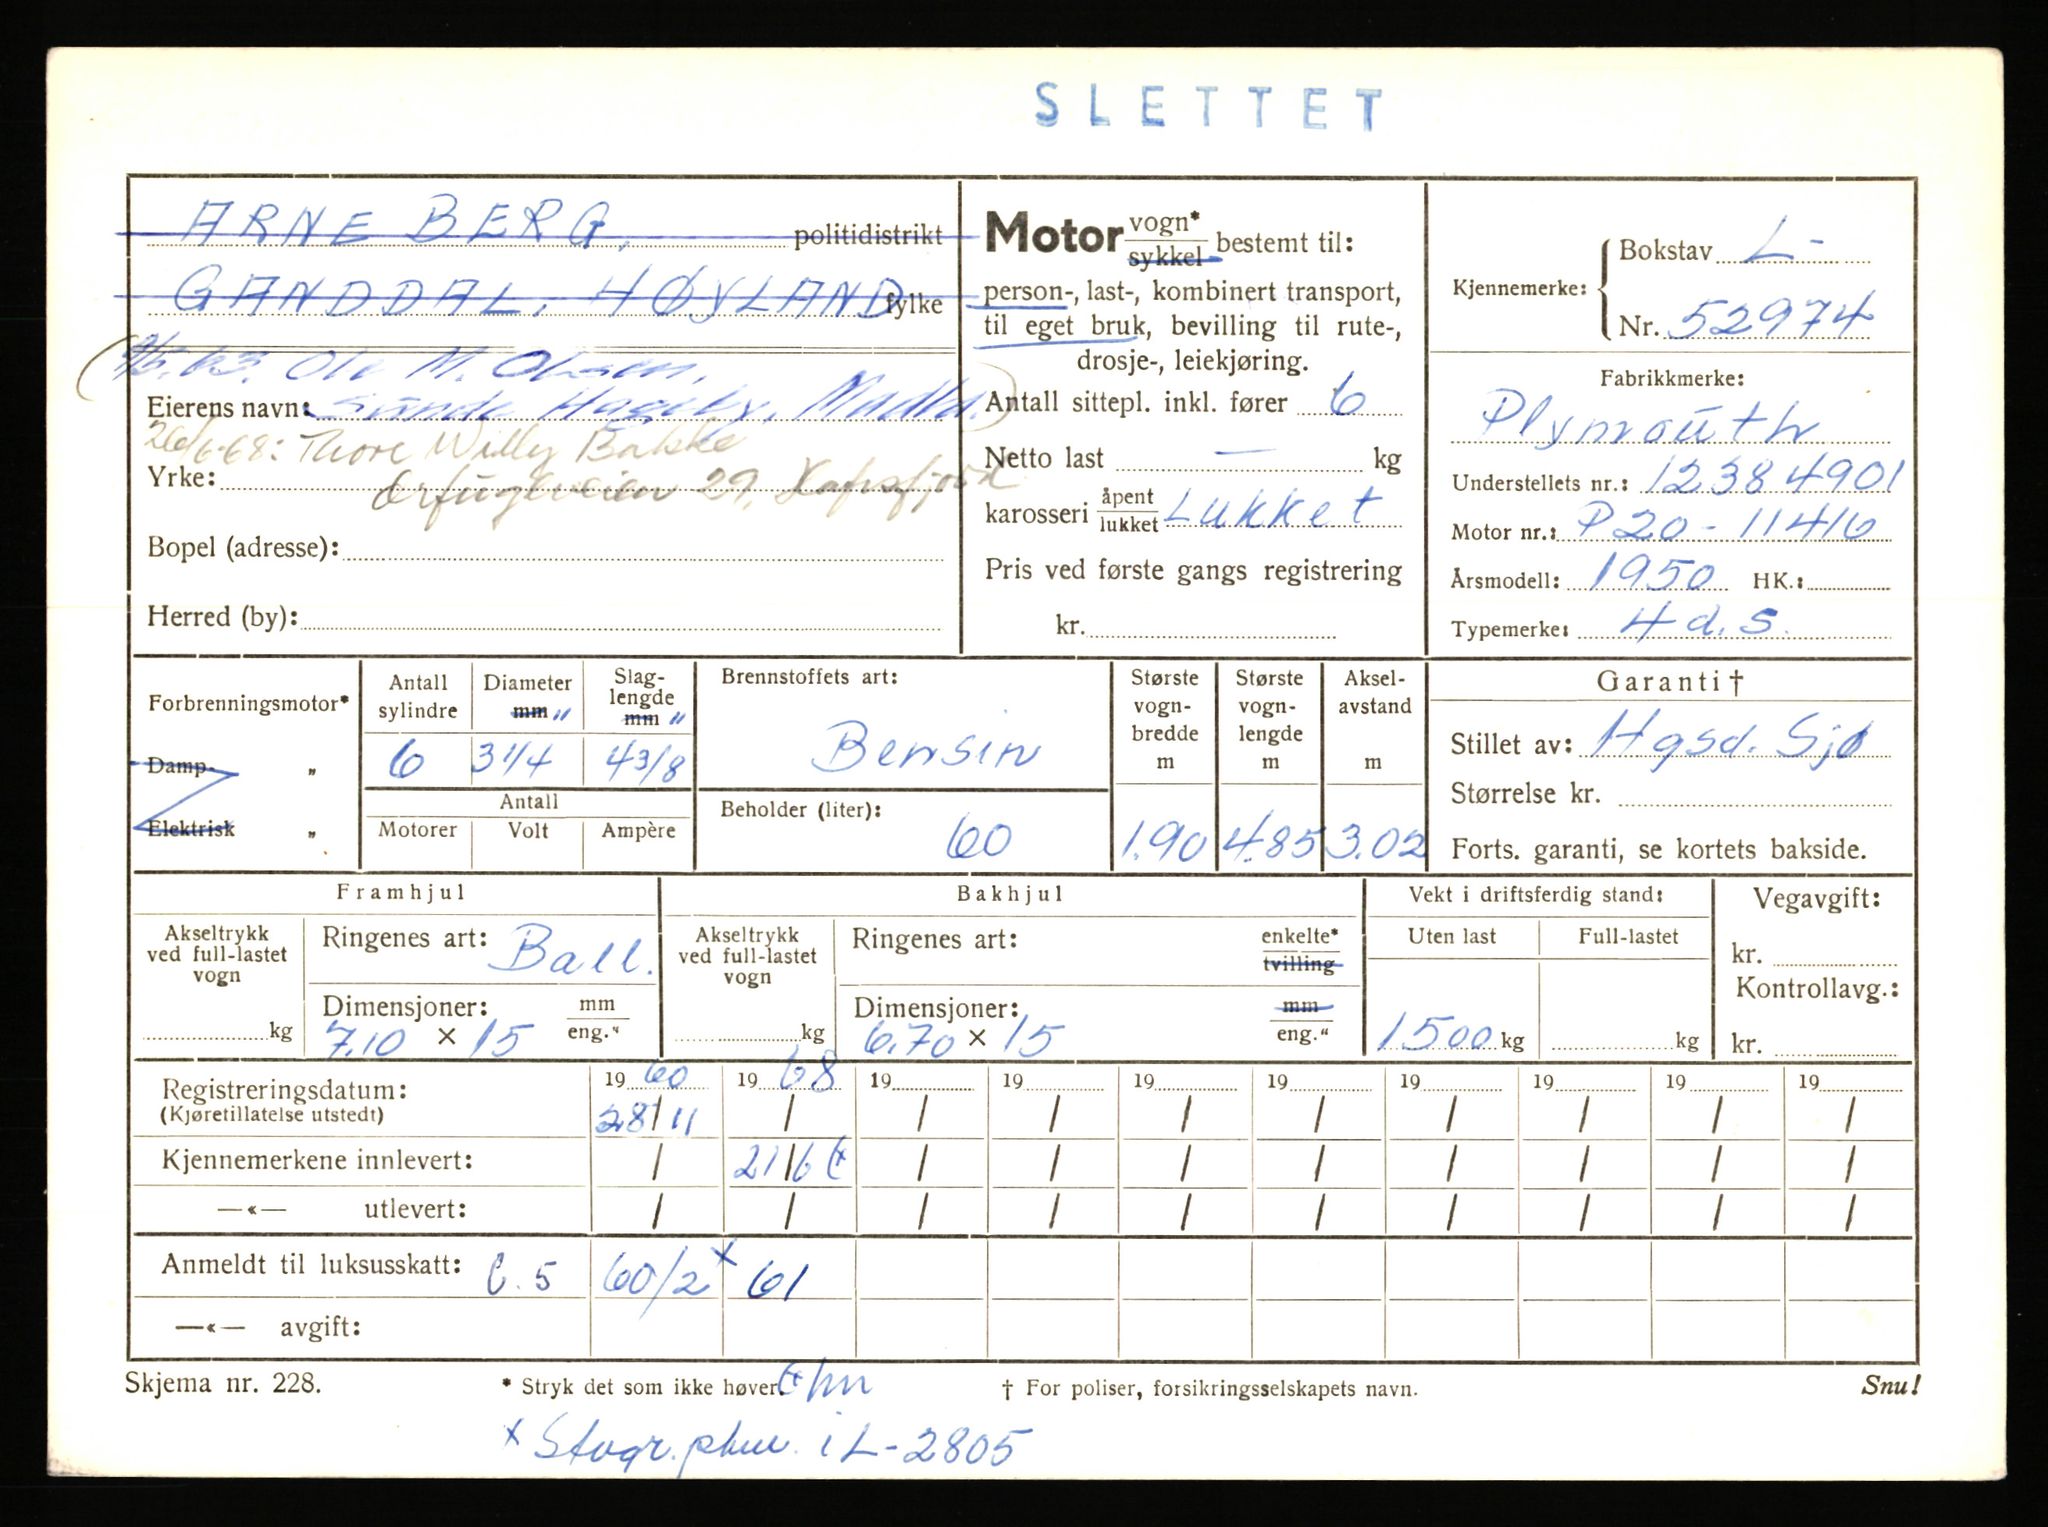 SLETTET
ARNE BERG, politidistrikt
GANDDAL, HØYLAND fylke
Ole M. Olsen,
Eierens navn: Sunde Hageby, Madla.
26/6-68: Thore Willy Bakke
Yrke: Ærfugleveien 29, Hafrsfjord
Bopel (adresse):
Herred (by):
Motor vogn* sykkel bestemt til:
person-, last-, kombinert transport,
til eget bruk, bevilling til rute-,
drosje-, leiekjøring.
Antall sittepl. inkl. fører 6
Netto last — kg
karosseri åpent lukket Lukket
Pris ved første gangs registrering
kr.
Kjennemerke: Bokstav L-
Nr. 52974
Fabrikkmerke:
Plymouth
Understellets nr.: 12384901
Motor nr.: P20-11416
Årsmodell: 1950 HK.:
Typemerke: 4 d. s.
Forbrenningsmotor*
Damp- „
Elektrisk „
Antall sylindre
6
Diameter mm "
3 1/4
Slaglengde mm "
4 3/8
Antall
Motorer Volt Ampère
Brennstoffets art:
Bensin
Beholder (liter):
60
Største vognbredde m
1.90
Største vognlengde m
4.85
Akselavstand m
3.02
Garanti †
Stillet av: Hgsd. Sjø
Størrelse kr.
Forts. garanti, se kortets bakside.
Framhjul
Akseltrykk ved full-lastet vogn
kg
Ringenes art: Ball.
Dimensjoner: mm eng."
7.10 × 15
Bakhjul
Akseltrykk ved full-lastet vogn
kg
Ringenes art: enkelte* tvilling
Dimensjoner: mm eng."
6.70 × 15
Vekt i driftsferdig stand:
Uten last Full-lastet
1500 kg kg
Vegavgift:
kr.
Kontrollavg.:
kr.
Registreringsdatum: 19 60 19 68 19 19 19 19 19 19 19 19
(Kjøretillatelse utstedt) 28/11 / / / / / / / / /
Kjennemerkene innlevert: / 21/6 / / / / / / / /
—«— utlevert: / / / / / / / / / /
Anmeldt til luksusskatt: C. 5 60/2 x 61
—«— avgift:
Skjema nr. 228. * Stryk det som ikke høver. † For poliser, forsikringsselskapets navn. Snu!
x i L-2805